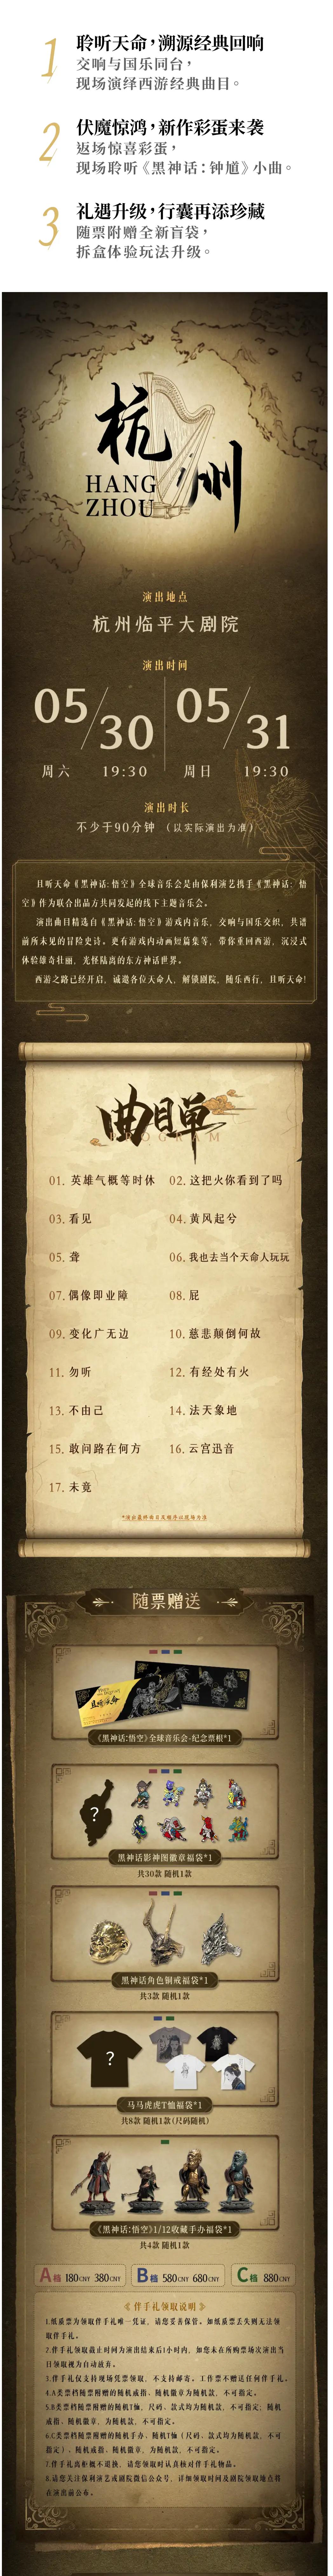 1
聆听天命，溯源经典回响
交响与国乐同台，
现场演绎西游经典曲目。
2
伏魔惊鸿，新作彩蛋来袭
返场惊喜彩蛋，
现场聆听《黑神话：钟馗》小曲。
3
礼遇升级，行囊再添珍藏
随票附赠全新盲袋，
拆盒体验玩法升级。
杭州
HANG
ZHOU
演出地点
杭州临平大剧院
演出时间
05/30 05/31
周六 19:30 周日 19:30
演出时长
不少于90分钟（以实际演出为准）
且听天命《黑神话:悟空》全球音乐会是由保利演艺携手《黑神话：悟
空》作为联合出品方共同发起的线下主题音乐会。
演出曲目精选自《黑神话:悟空》游戏内音乐，交响与国乐交织，共谱
前所未见的冒险史诗。更有游戏内动画短篇集等，带你重回西游，沉浸式
体验雄奇壮丽，光怪陆离的东方神话世界。
西游之路已经开启，诚邀各位天命人，解锁剧院，随乐西行，且听天命!
曲目单
PROGRAM
01. 英雄气概等时休 02. 这把火你看到了吗
03. 看见 04. 黄风起兮
05. 聋 06. 我也去当个天命人玩玩
07. 偶像即业障 08. 屁
09. 变化广无边 10. 慈悲颠倒何故
11. 勿听 12. 有经处有火
13. 不由己 14. 法天象地
15. 敢问路在何方 16. 云宫迅音
17. 未竟
*演出最终曲目及顺序以现场为准
随票赠送
且听天命
《黑神话:悟空》全球音乐会-纪念票根*1
?
黑神话影神图徽章福袋*1
共30款 随机1款
黑神话角色铜戒福袋*1
共3款 随机1款
?
马马虎虎T恤福袋*1
共8款 随机1款(尺码随机)
《黑神话:悟空》1/12收藏手办福袋*1
共4款 随机1款
A档 180CNY 380CNY B档 580CNY 680CNY C档 880CNY
《伴手礼领取说明》
1.纸质票为领取伴手礼唯一凭证，请您妥善保管。如纸质票丢失则无法领
取伴手礼。
2.伴手礼领取截止时间为演出结束后1小时内，如您未在所购票场次演出当
日领取视为自动放弃。
3.伴手礼仅支持现场凭票领取，不支持邮寄。工作票不赠送任何伴手礼。
4.A类票档随票附赠的随机戒指、随机徽章为随机款，不可指定。
5.B类票档随票附赠的随机T恤，尺码、款式均为随机款，不可指定；随机
戒指、随机徽章，为随机款，不可指定。
6.C类票档随票附赠的随机手办、随机T恤（尺码、款式均为随机款，不可
指定）、随机戒指、随机徽章，为随机款，不可指定。
7.伴手礼离柜概不退换，请您领取时认真核对伴手礼物品。
8.请您关注保利演艺或剧院微信公众号，详细领取时间及剧院领取地点将
在演出前公布。